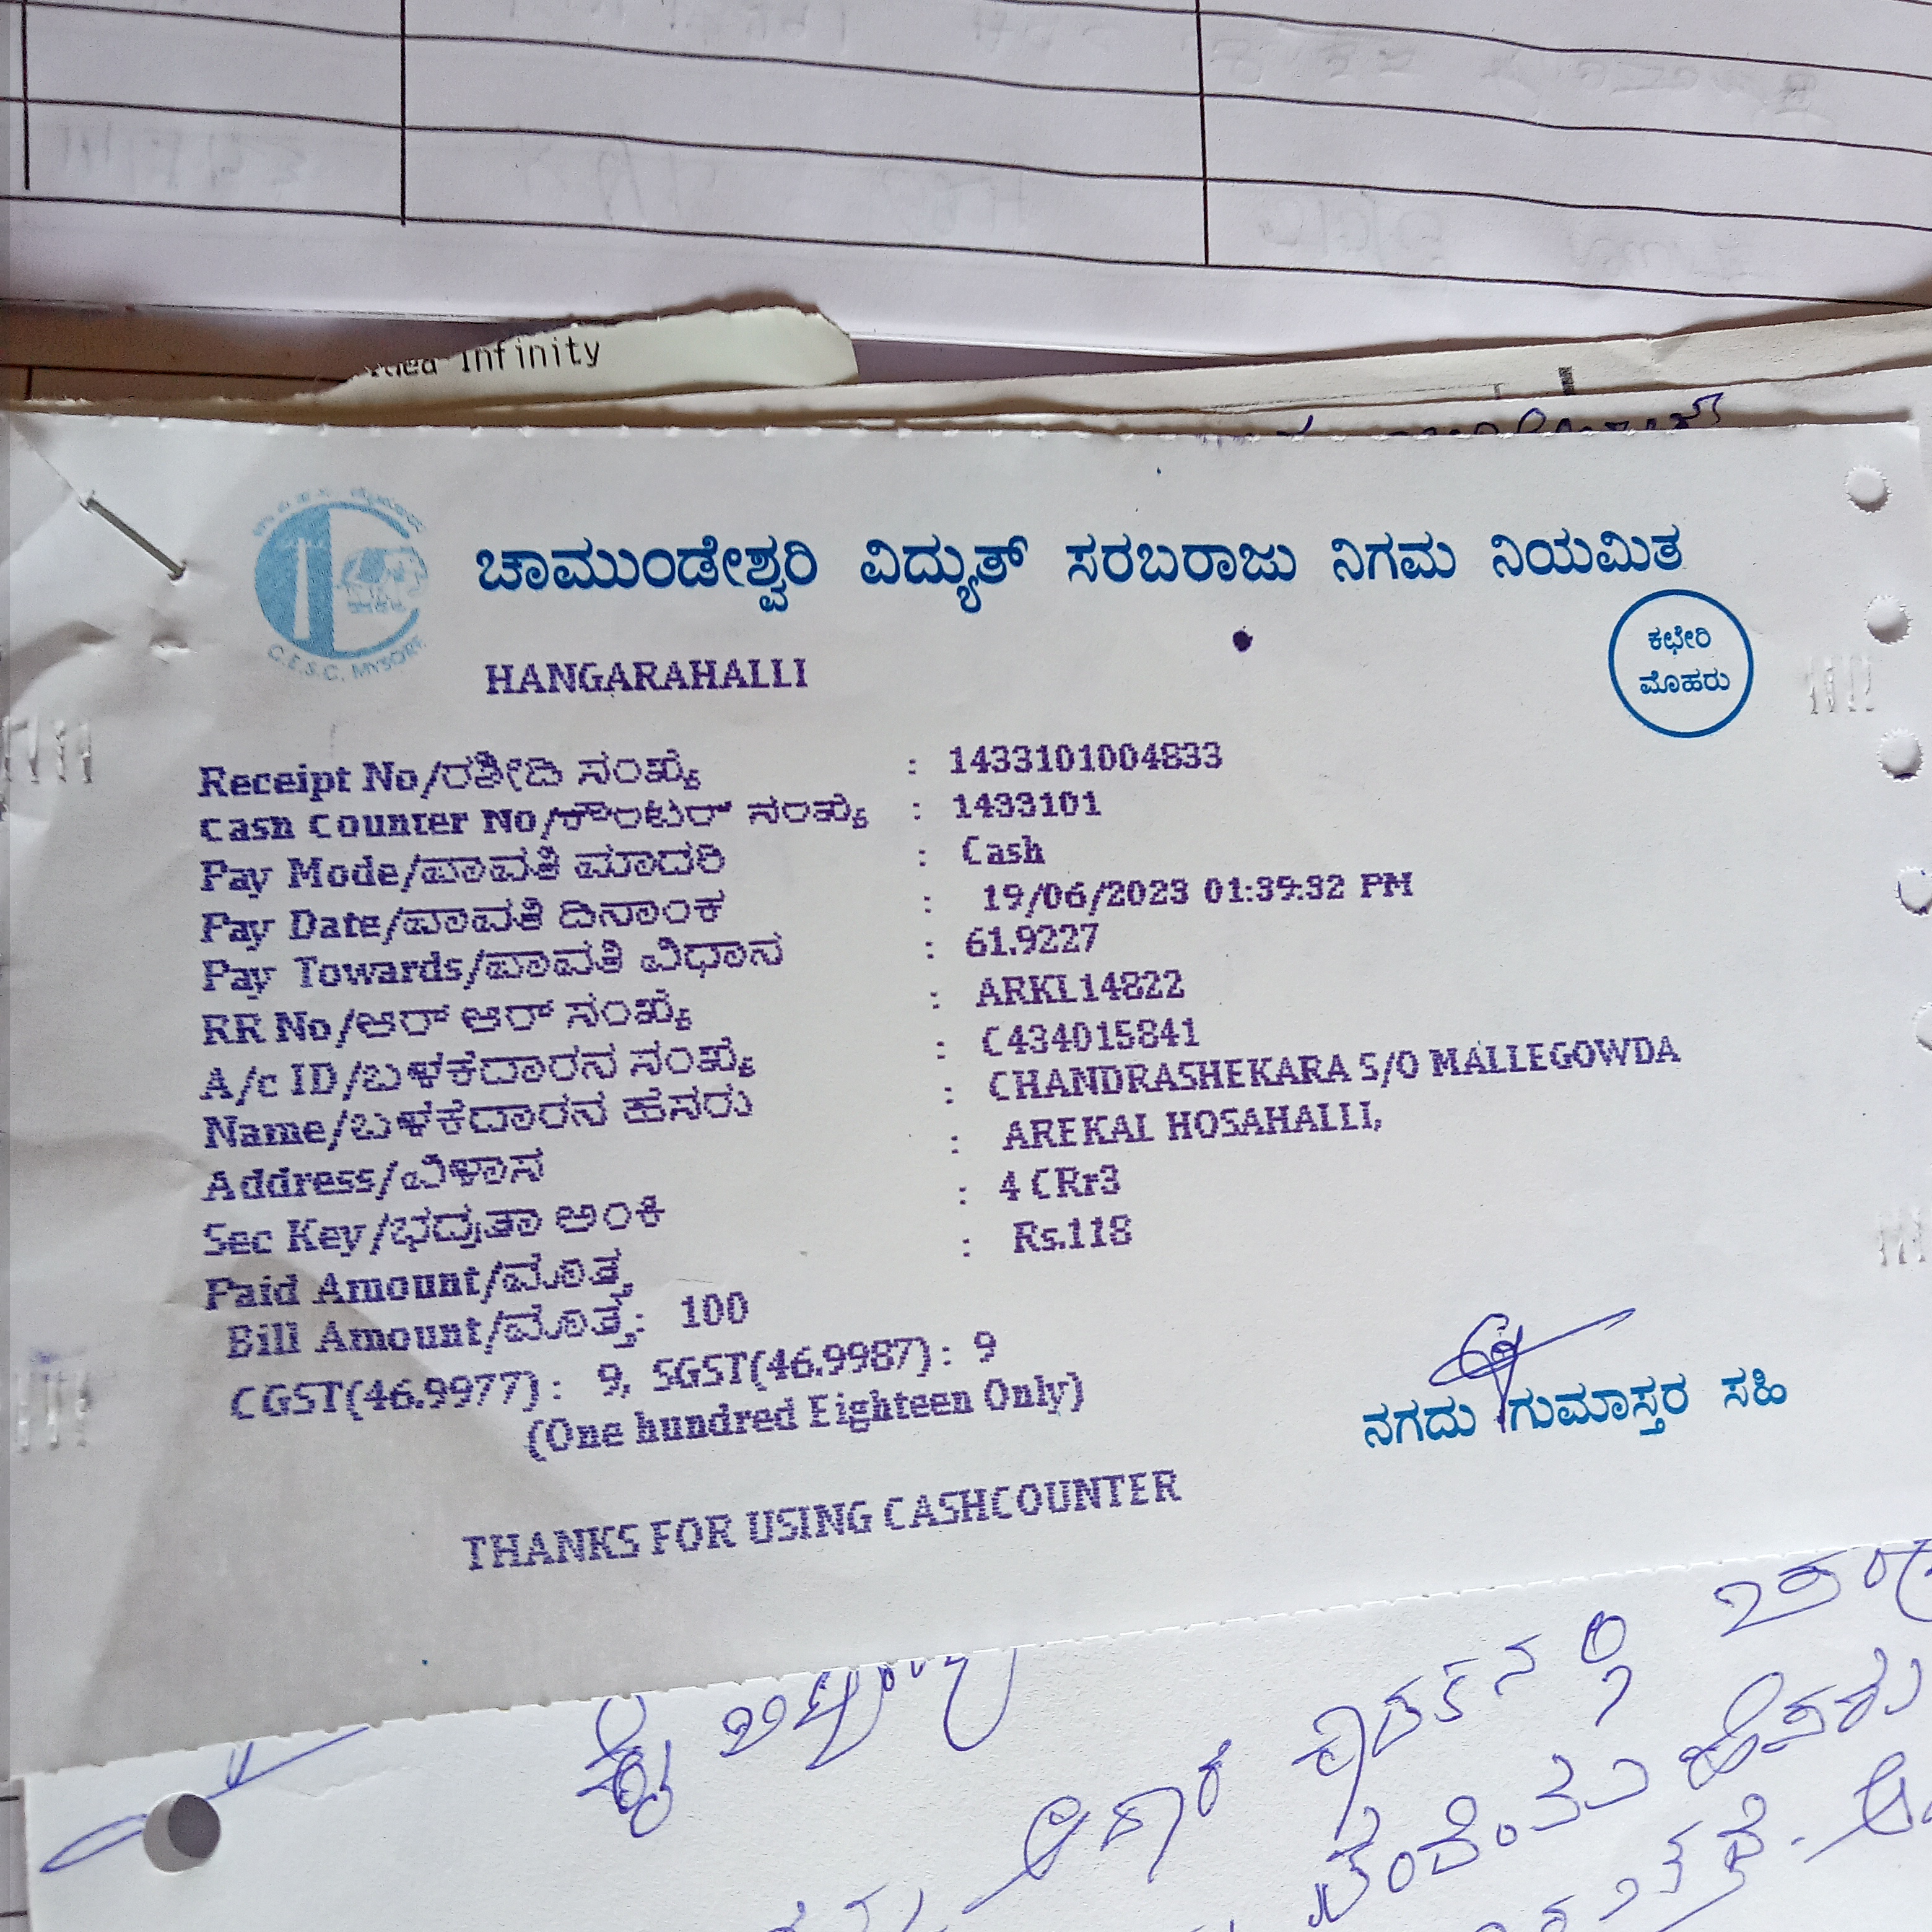 Infinity
ಚಾಮುಂಡೇಶ್ವರಿ ವಿದ್ಯುತ್ ಸರಬರಾಜು ನಿಗಮ ನಿಯಮಿತ
C.E.S.C. MYSORE
HANGARAHALLI
ಕಛೇರಿ
ಮೊಹರು
Receipt No/ರಶೀದಿ ಸಂಖ್ಯೆ : 1433101004833
Cash Counter No/ಕೌಂಟರ್ ಸಂಖ್ಯೆ : 1433101
Pay Mode/ಪಾವತಿ ಮಾದರಿ : Cash
Pay Date/ಪಾವತಿ ದಿನಾಂಕ : 19/06/2023 01:39:32 PM
Pay Towards/ಪಾವತಿ ವಿಧಾನ : 61.9227
RR No/ಆರ್ ಆರ್ ಸಂಖ್ಯೆ : ARKL14822
A/c ID/ಬಳಕೆದಾರನ ಸಂಖ್ಯೆ : C434015841
Name/ಬಳಕೆದಾರನ ಹೆಸರು : CHANDRASHEKARA S/O MALLEGOWDA
Address/ವಿಳಾಸ : AREKAL HOSAHALLI,
Sec Key/ಭದ್ರತಾ ಅಂಕಿ : 4 CRr3
Paid Amount/ಮೊತ್ತ : Rs.118
Bill Amount/ಮೊತ್ತ: 100
CGST(46.9977) : 9, SGST(46.9987) : 9
(One hundred Eighteen Only)
ನಗದು ಗುಮಾಸ್ತರ ಸಹಿ
THANKS FOR USING CASHCOUNTER